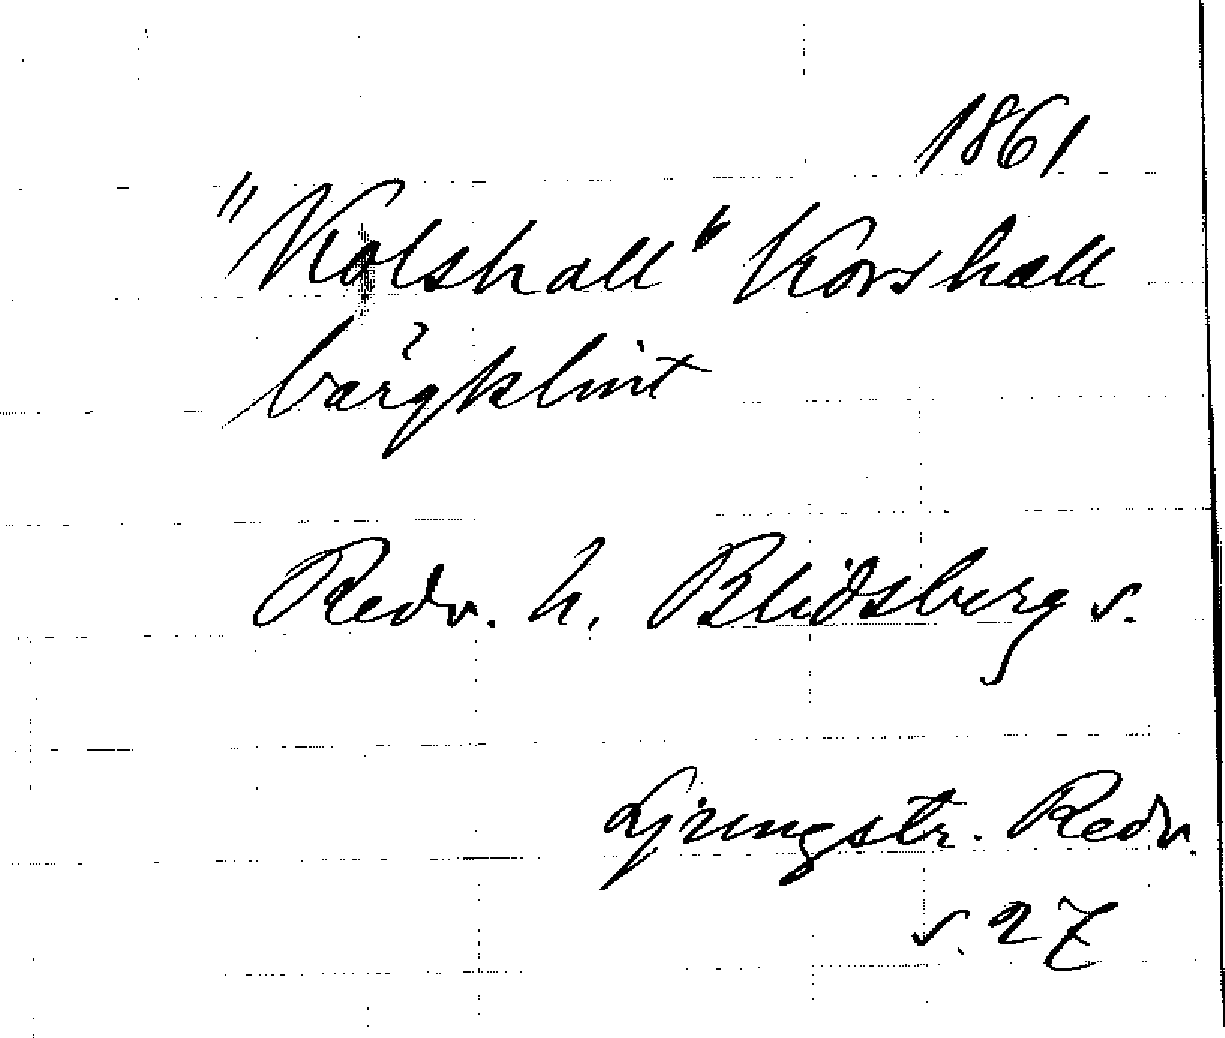 1861
"Kolshall" Korshall
bärgklint
Redv. h. Blidsberg s.
Ljungstr. Redv.
s. 27